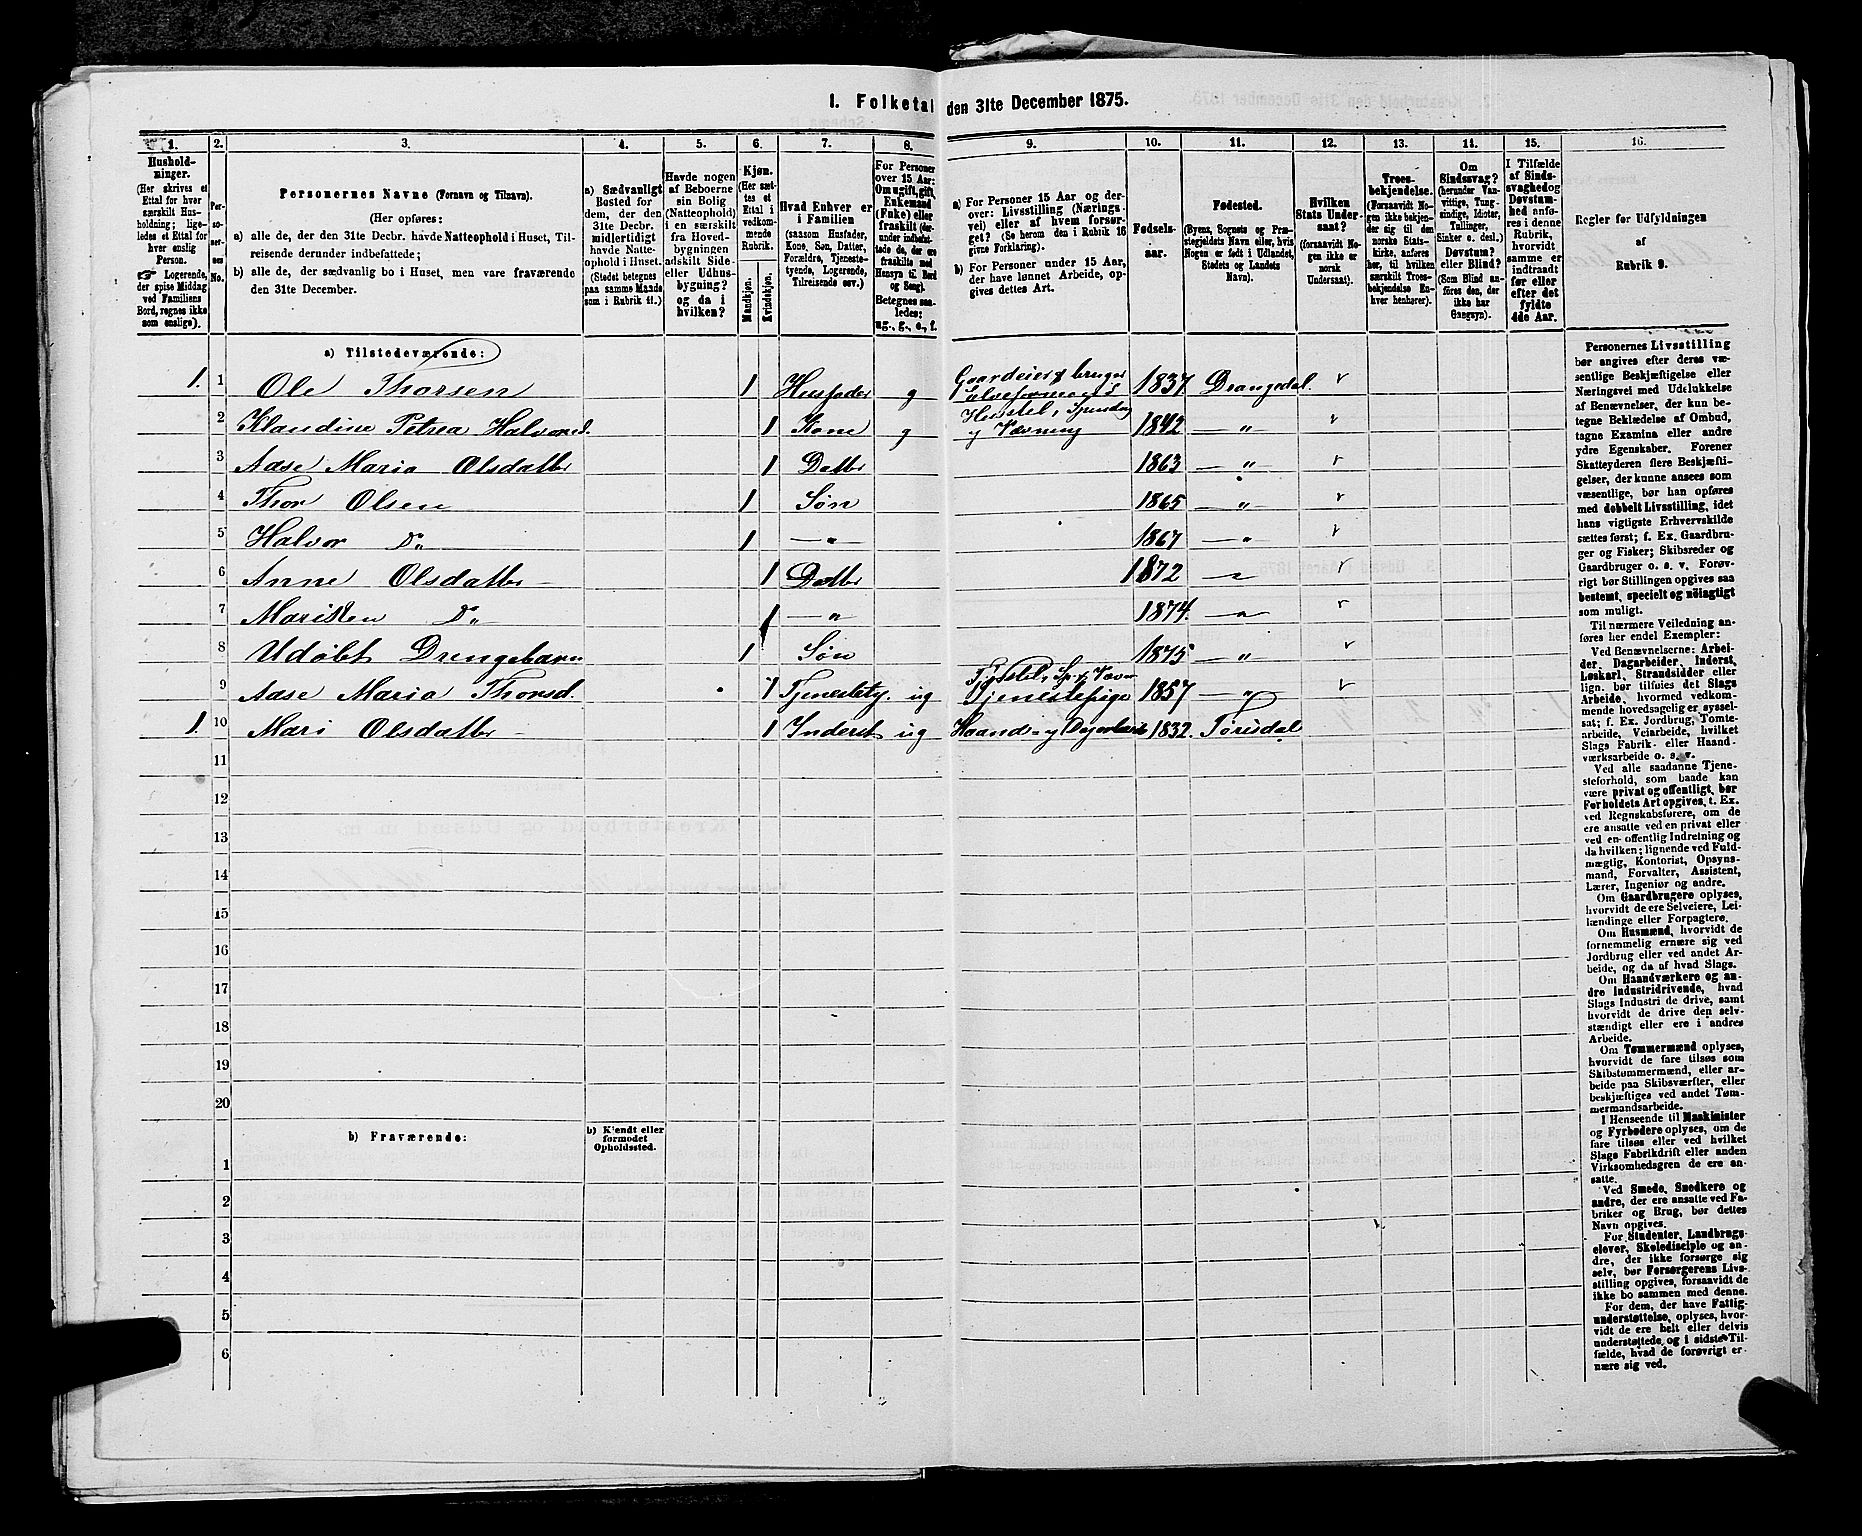 I. Folketal den 31te December 1875.
1. 2. 3. 4. 5. 6. 7. 8. 9. 10. 11. 12. 13. 14. 15. 16.
Hushold-
ninger.
(Her skrives et
Ettal for hver
særskilt Hus-
holdning; lige-
ledes et Ettal for
hver enslig
Person.
☞ Logerende,
der spise Middag
ved Familiens
Bord, regnes ikke
som enslige).
Per-
so-
ner-
nes
No.
Personernes Navne (Fornavn og Tilnavn).
(Her opføres:
a) alle de, der den 31te Decbr. havde Natteophold i Huset, Til-
reisende derunder indbefattede;
b) alle de, der sædvanlig bo i Huset, men vare fraværende
den 31te December.
a) Sædvanligt
Bosted for
dem, der den
31te Decbr.
midlertidigt
havde Natte-
ophold i Huset.
(Stedet betegnes
paa samme Maade
som i Rubrik 11.)
Havde nogen
af Beboerne
sin Bolig
(Natteophold)
i en særskilt
fra Hoved-
bygningen
adskilt Side-
eller Udhus-
bygning?
og da i
hvilken?
Kjøn.
(Her sæt-
tes et
Ettal i
vedkom-
mende
Rubrik.
Mandkjøn.
Kvindekjøn.
Hvad Enhver er
i Familien
(saasom Husfader,
Kone, Søn, Datter,
Forældre, Tjeneste-
tyende, Logerende,
Tilreisende osv.)
For Personer
over 15 Aar:
Om ugift, gift,
Enkemand
(Enke) eller
fraskilt (der-
under indbefat-
tede de, der ere
fraskilte med
Hensyn til Bord
og Seng).
Betegnes saa-
ledes:
ug., g., e., f.
a) For Personer 15 Aar og der-
over: Livsstilling (Nærings-
vei) eller af hvem forsør-
get? (Se herom den i Rubrik 16
givne Forklaring).
b) For Personer under 15 Aar,
der have lønnet Arbeide, op-
gives dettes Art.
Fødsels-
aar.
Fødested.
(Byens, Sognets og Præ-
stegjeldets Navn eller, hvis
Nogen er født i Udlandet,
Stedets og Landets
Navn).
Hvilken
Stats Under-
saat?
(forsaavidt No-
gen ikke er
norsk
Undersaat).
Troes-
bekjendelse.
(Forsaavidt No-
gen ikke bekjen-
der sig til den
norske Stats-
kirke, anføres
her, til hvilken
særskilt Troes-
bekjendelse En-
hver henhører).
Om
Sindssvag?
(herunder Van-
vittige, Tung-
sindige, Idioter,
Tullinger,
Sinker o. desl.)
Døvstum?
eller Blind?
(Som Blind an-
føres den, der
ikke har
Gangsyn).
I Tilfælde
af Sinds-
svaghed og
Døvstum-
hed anfø-
res i denne
Rubrik,
hvorvidt
samme er
indtraadt
før eller
efter det
fyldte
4de Aar.
Regler for Udfyldningen
af
Rubrik 9.
a) Tilstedeværende:
1. 1 Ole Thorsen 1 Husfader g Gaardeier & bruger 1837. Drangedal.
2 Klaudine Petrea Halvorsd. 1 Kone g Husstel, Spinding og Vævning 1842 — " —
3 Aase Maria Olsdatter 1 Datter 1863 — " —
4 Thor Olsen 1 Søn 1865 — " —
5 Halvor Do 1 — " — 1867 — " —
6 Anne Olsdatter 1 Datter 1872 — " —
7 Maristen Do 1 — " — 1874. — " —
8 Udøbt Drengebarn 1 Søn 1875 — " —
9 Aase Maria Thorsd. 1 Tjenestety. ug Tjenestepige 1857 — " —
1. 10 Mari Olsdatter 1 Inderst ug Haand- og Dagarbeide 1832. Tørisdal
11
12
13
14
15
16
17
18
19
20
b) Fraværende:
b) Kjendt eller
formodet
Opholdssted.
1
2
3
4
5
6
Personernes Livsstilling
bør angives efter deres væ-
sentlige Beskjæftigelse eller
Næringsvei med Udelukkelse
af Benævnelser, der kun be-
tegne Beklædelse af Ombud,
tagne Examina eller andre
ydre Egenskaber. Forener
Skatteyderen flere Beskjæfti-
gelser, der kunne ansees som
væsentlige, bør han opføres
med dobbelt Livsstilling, idet
hans vigtigste Erhvervskilde
sættes først; f. Ex. Gaardbru-
ger og Fisker; Skibsreder og
Gaardbruger o. s. v. Forøv-
rigt bør Stillingen opgives saa
bestemt, specielt og nøiagtigt
som muligt.
Til nærmere Veiledning an-
føres her endel Exempler:
Ved Benævnelserne: Arbei-
der, Dagarbeider, Inderst,
Løskarl, Strandsidder eller
lign. bør tilføies det Slags
Arbeide, hvormed vedkom-
mende hovedsagelig er syssel-
sat; f. Ex. Jordbrug, Tomte-
arbeide, Veiarbeide, hvilket
Slags Fabrik- eller Haand-
værksarbeide o. s. v.
Ved alle saadanne Tjene-
steforhold, som baade kan
være privat og offentligt, bør
Forholdets Art opgives, t. Ex.
ved Regnskabsførere, om de
ere ansatte ved en privat eller
ved en offentlig Indretning og
da hvilken; lignende ved Fuld-
mægtig, Kontorist, Opsyns-
mand, Forvalter, Assistent,
Lærer, Ingeniør og andre.
Om Gaardbrugere oplyses,
hvorvidt de ere Selveiere, Lei-
lændinge eller Forpagtere.
Om Husmænd, hvorvidt de
fornemmelig ernære sig ved
Jordbrug eller ved andet Ar-
beide, og da af hvad Slags.
Om Haandværkere og an-
dre Industridrivende, hvad
Slags Industri de drive, samt
hvorvidt de drive den selv-
stændigt eller ere i andres
Arbeide.
Om Tømmermænd oplyses,
hvorvidt de fare tilsøs som
Skibstømmermænd, eller ar-
beide paa Skibsværfter, eller
beskjæftiges ved andet Tøm-
mermandsarbeide.
I Henseende til Maskinister
og Fyrbødere oplyses, om de
fare tilsøs eller ved hvilket
Slags Fabrikdrift eller anden
Virksomhedsgren de ere an-
satte.
Ved Smede, Snedkere og
andre, der ere ansatte ved Fa-
briker og Brug, bør dettes
Navn opgives.
For Studenter, Landbrugs-
elever, Skoledisciple og an-
dre, der ikke forsørge sig
selv, bør Forsørgerens Livs-
stilling opgives, forsaavidt de
ikke bo sammen med denne.
For dem, der have Fattig-
understøttelse, oplyses, hvor-
vidt de ere helt eller delvis
understøttede og i sidste Til-
fælde, hvad de forøvrigt er-
nære sig ved.